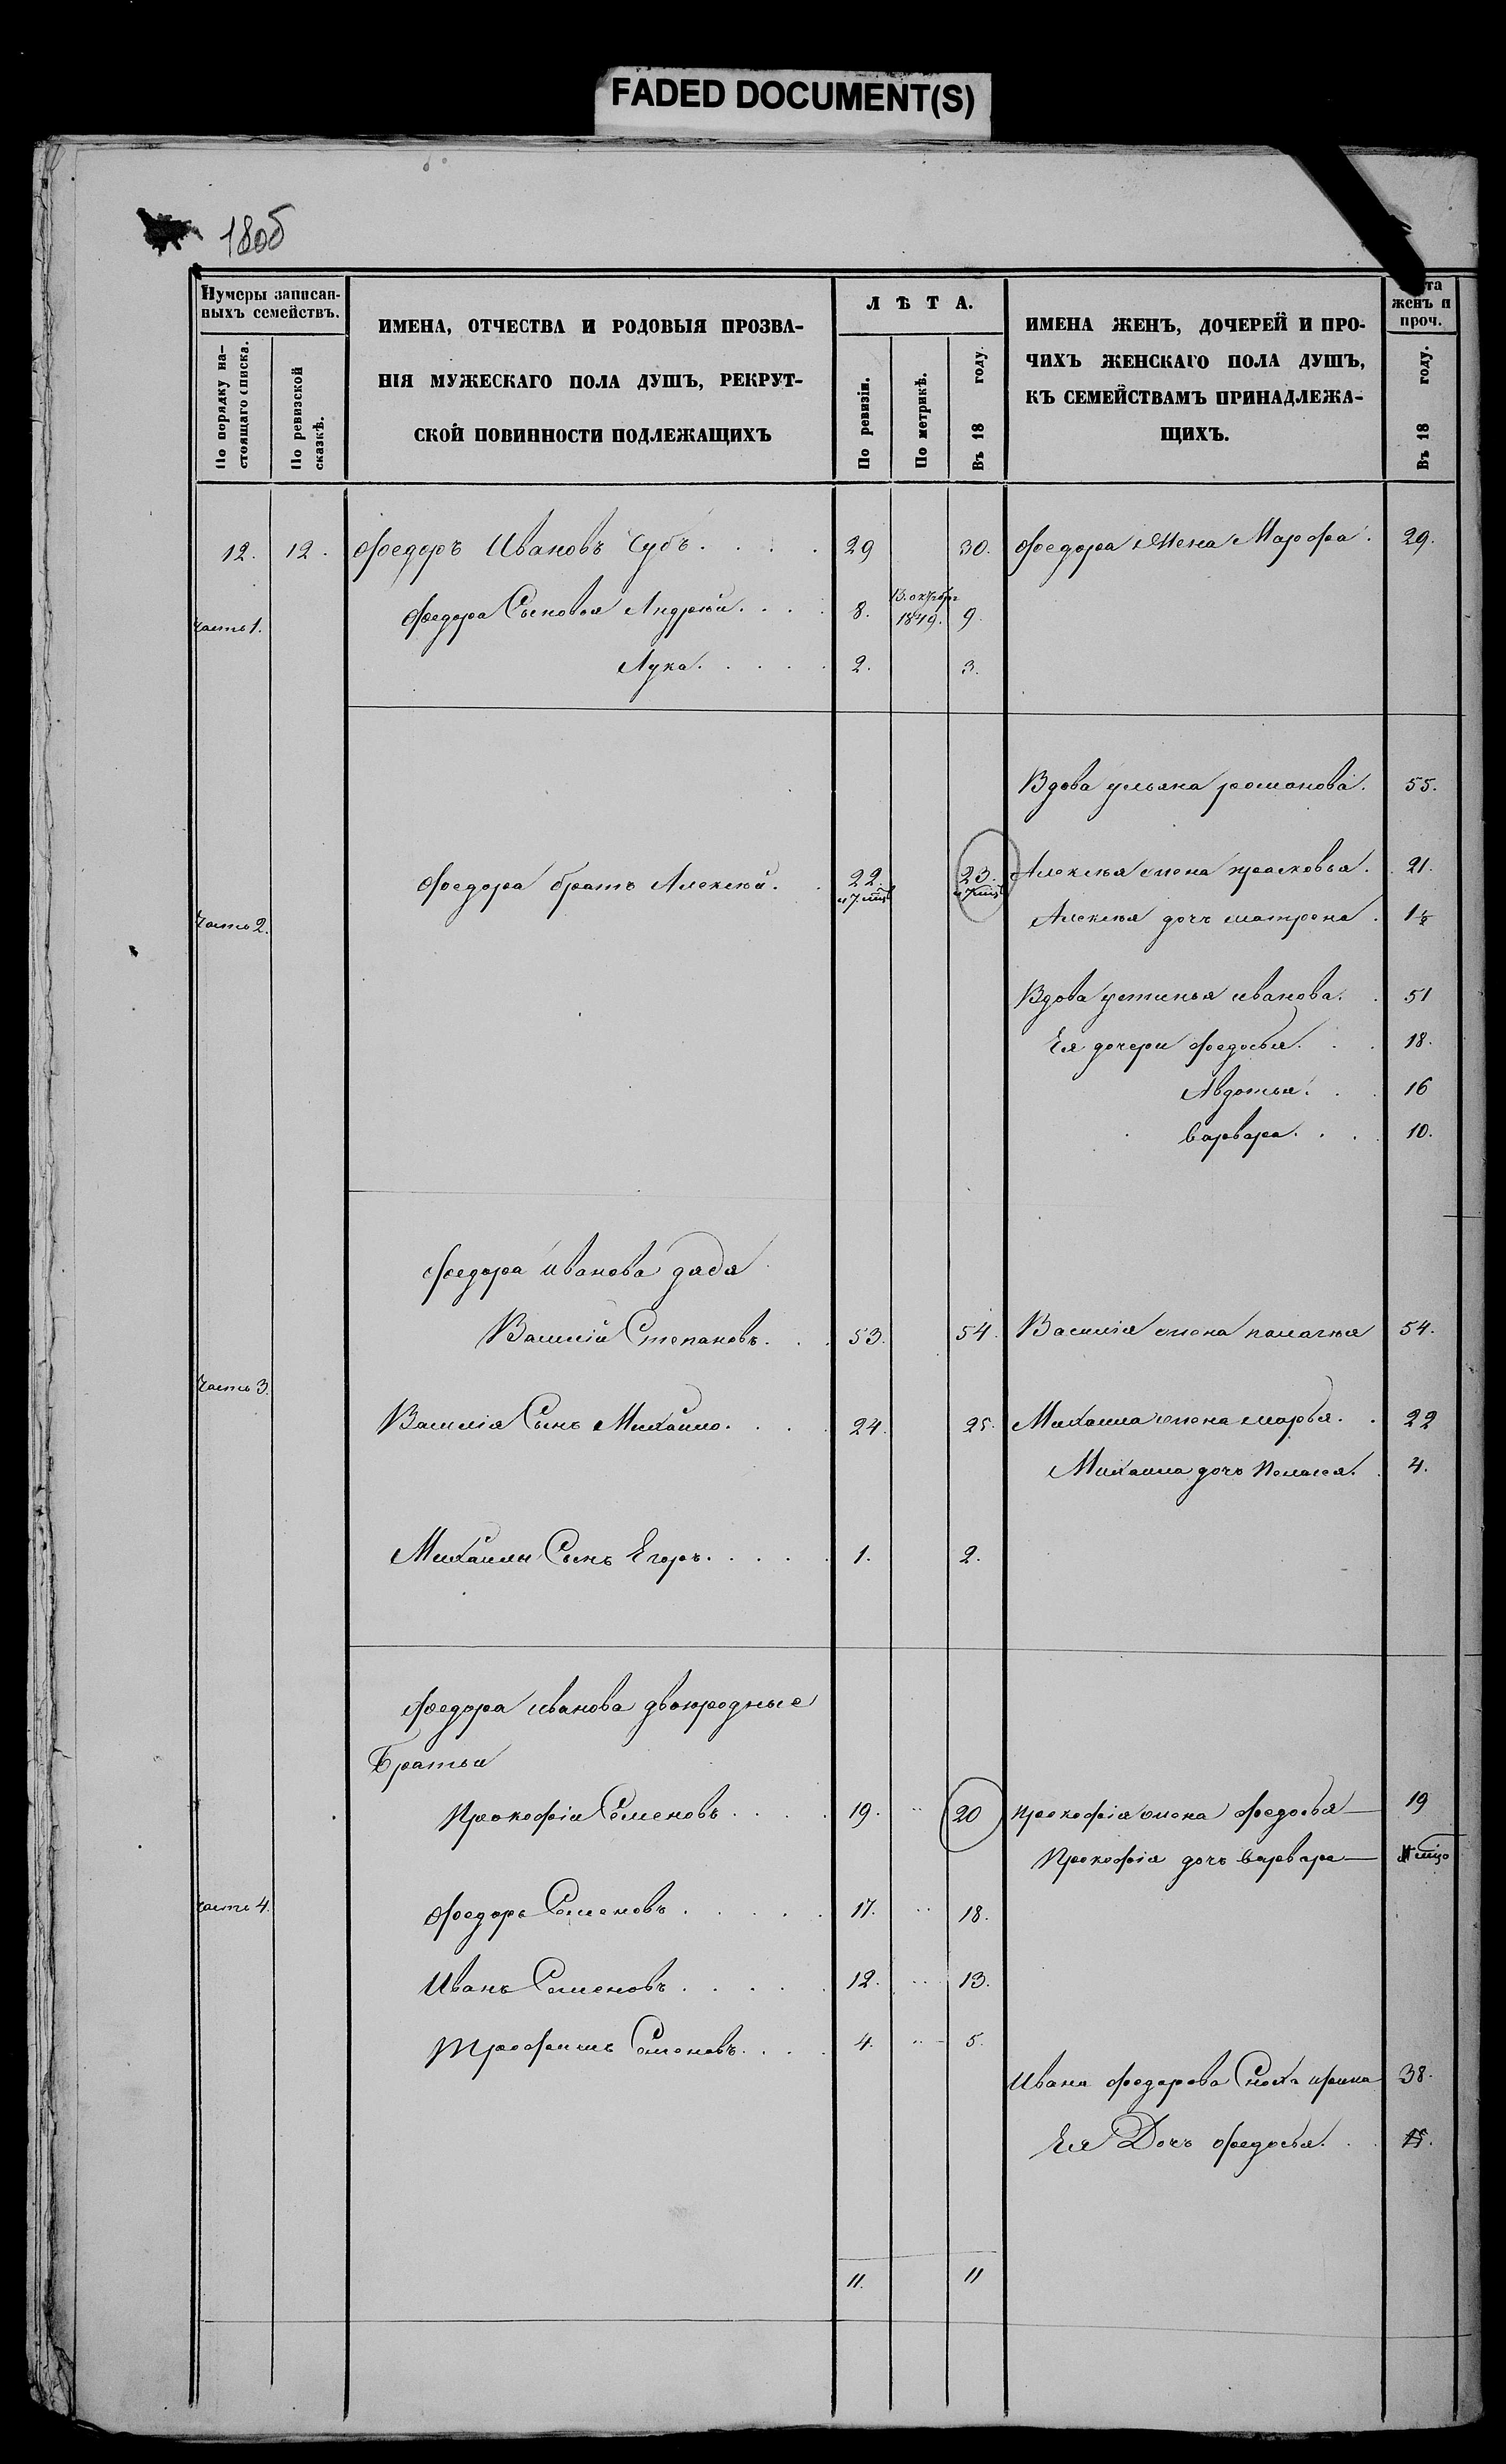 FADED DOCUMENT(S)
180об
Нумеры записан-
ныхъ семействъ.
По порядку на-
стоящаго списка.
По ревизской
сказкѣ.
ИМЕНА, ОТЧЕСТВА И РОДОВЫЯ ПРОЗВА-
НІЯ МУЖЕСКАГО ПОЛА ДУШЪ, РЕКРУТ-
СКОЙ ПОВИННОСТИ ПОДЛЕЖАЩИХЪ
ЛѢТА.
По ревизіи.
По метрикѣ.
Въ 18 году.
ИМЕНА ЖЕНЪ, ДОЧЕРЕЙ И ПРО-
ЧИХЪ ЖЕНСКАГО ПОЛА ДУШЪ,
КЪ СЕМЕЙСТВАМЪ ПРИНАДЛЕЖА-
ЩИХЪ.
женъ и
проч.
Въ 18 году.
12. 12. Федоръ Ивановъ 29 30. Федора Жена Марфа. 29.
часть 1. Федора Сыновья Андрей. 8. 13. октября 1849. 9.
Лука. 2. 3.
Вдова ульяна романова. 55.
Федора братъ Алексей. 22. и 7 мцв 23. и 7 мцв Алексея жена прасковья. 21.
часть 2. Алексея дочь матрена. 1½
Вдова устинья иванова. 51
Ея дочери федосья. 18.
Авдотья. 16
варвара. 10.
Федора иванова дядя
Василій Степановъ. 53. 54. Василія жена палагея 54.
часть 3.
Василія Сынъ Михайло. 24. 25. Михаила жена марья. 22
Михаила дочь Пелагея. 4.
Михаилы Сынъ Егоръ. 1. 2.
Федора иванова двоюродные
Братьи
Прокофій Семеновъ. 19. 20 прокофія жена федосья 19
Прокофія дочь варвара
часть 4. Федоръ Семеновъ. 17. 18.
Иванъ Семеновъ. 12. 13.
Трофимъ Семеновъ. 4. 5.
Ивана федорова Сноха ирина 38.
Ея Дочь федосья.
11. 11